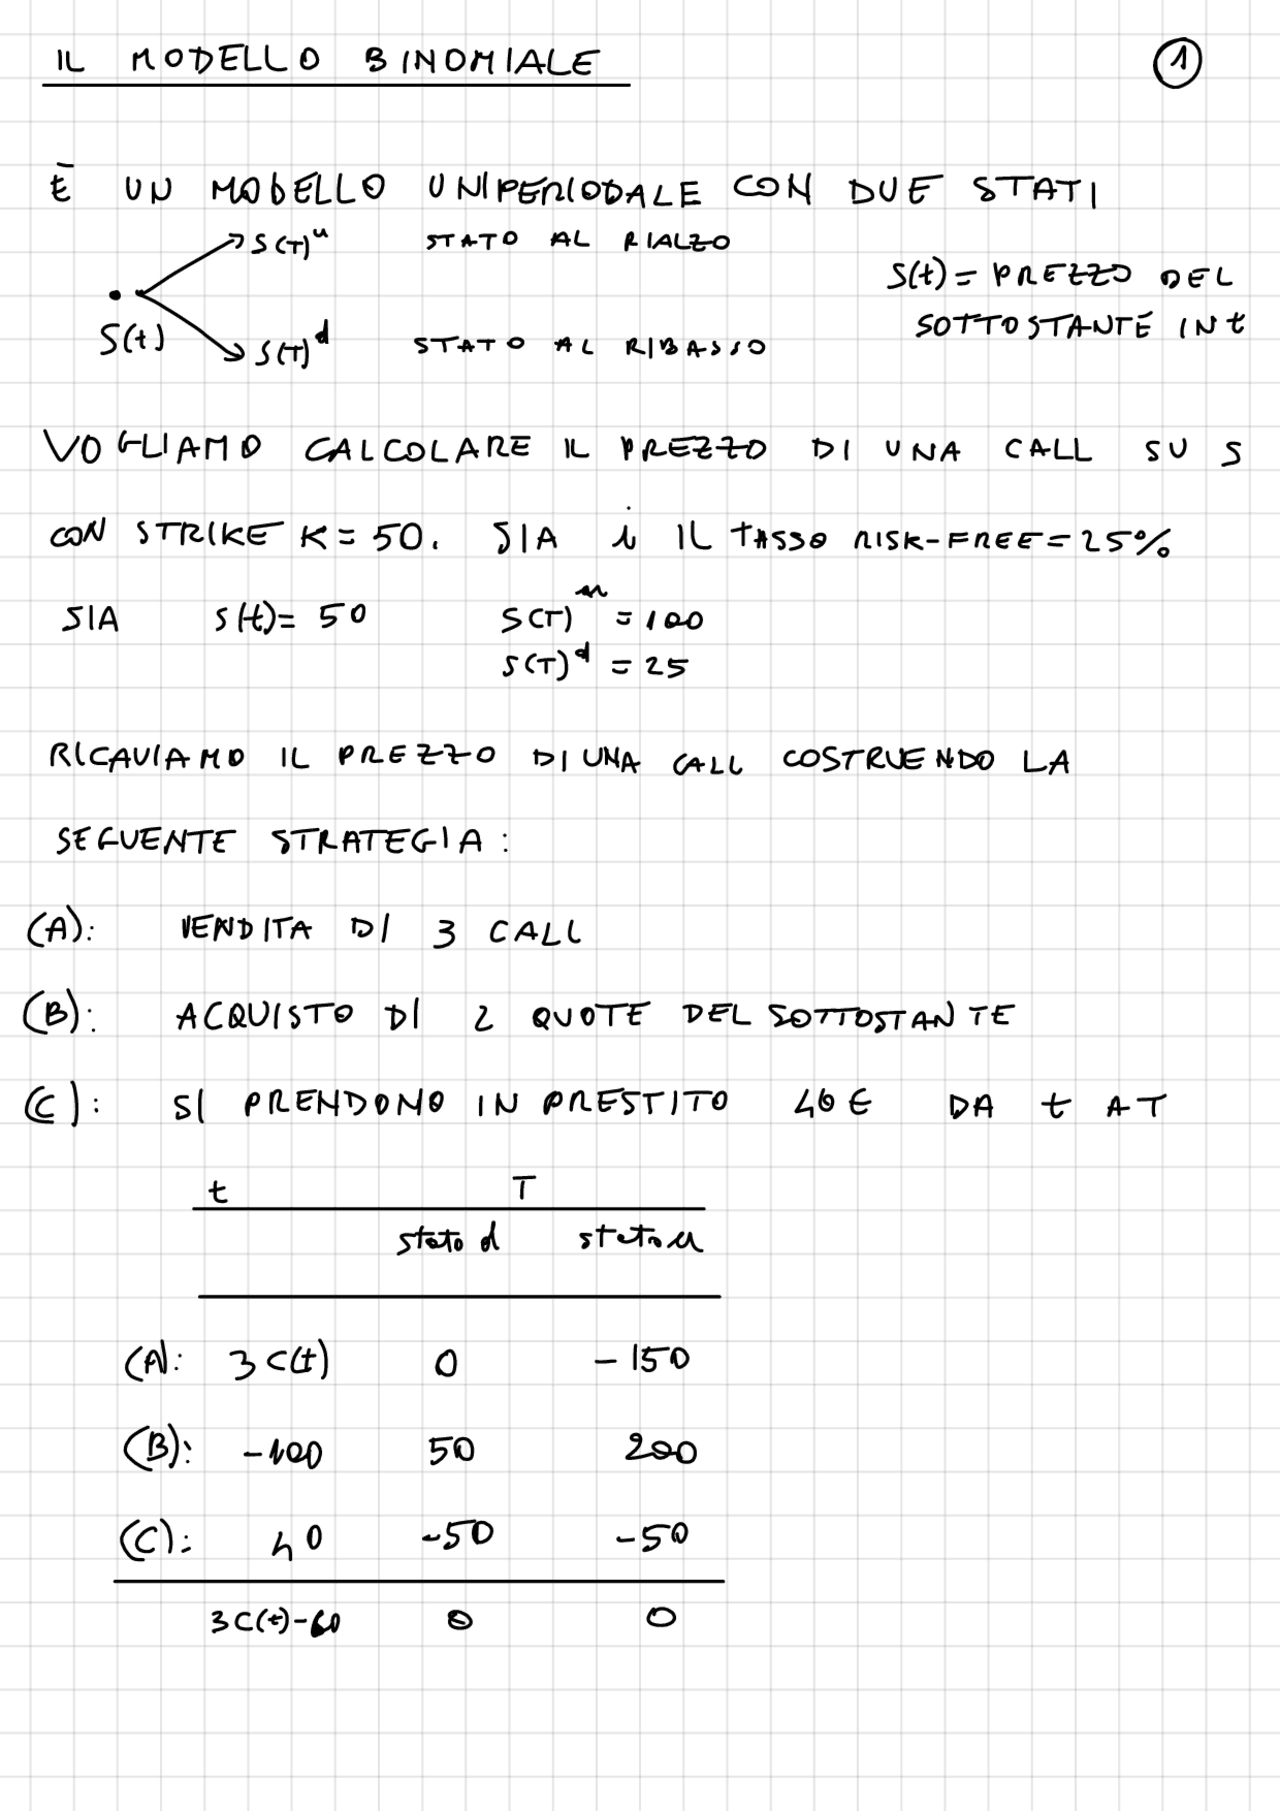 IL MODELLO BINOMIALE
1
È UN MODELLO UNIPERIODALE CON DUE STATI
S(T)^u STATO AL RIALZO
S(t) = PREZZO DEL
SOTTOSTANTE IN t
S(t)
S(T)^d STATO AL RIBASSO
VOGLIAMO CALCOLARE IL PREZZO DI UNA CALL SU S
CON STRIKE K = 50. SIA i IL TASSO RISK-FREE = 25%
SIA S(t) = 50 S(T)^u = 100
S(T)^d = 25
RICAVIAMO IL PREZZO DI UNA CALL COSTRUENDO LA
SEGUENTE STRATEGIA:
(A): VENDITA DI 3 CALL
(B): ACQUISTO DI 2 QUOTE DEL SOTTOSTANTE
(C): SI PRENDONO IN PRESTITO 40 € DA t A T
t T
stato d stato u
(A): 3 C(t) 0 -150
(B): -100 50 200
(C): 40 -50 -50
3 C(t) - 60 0 0